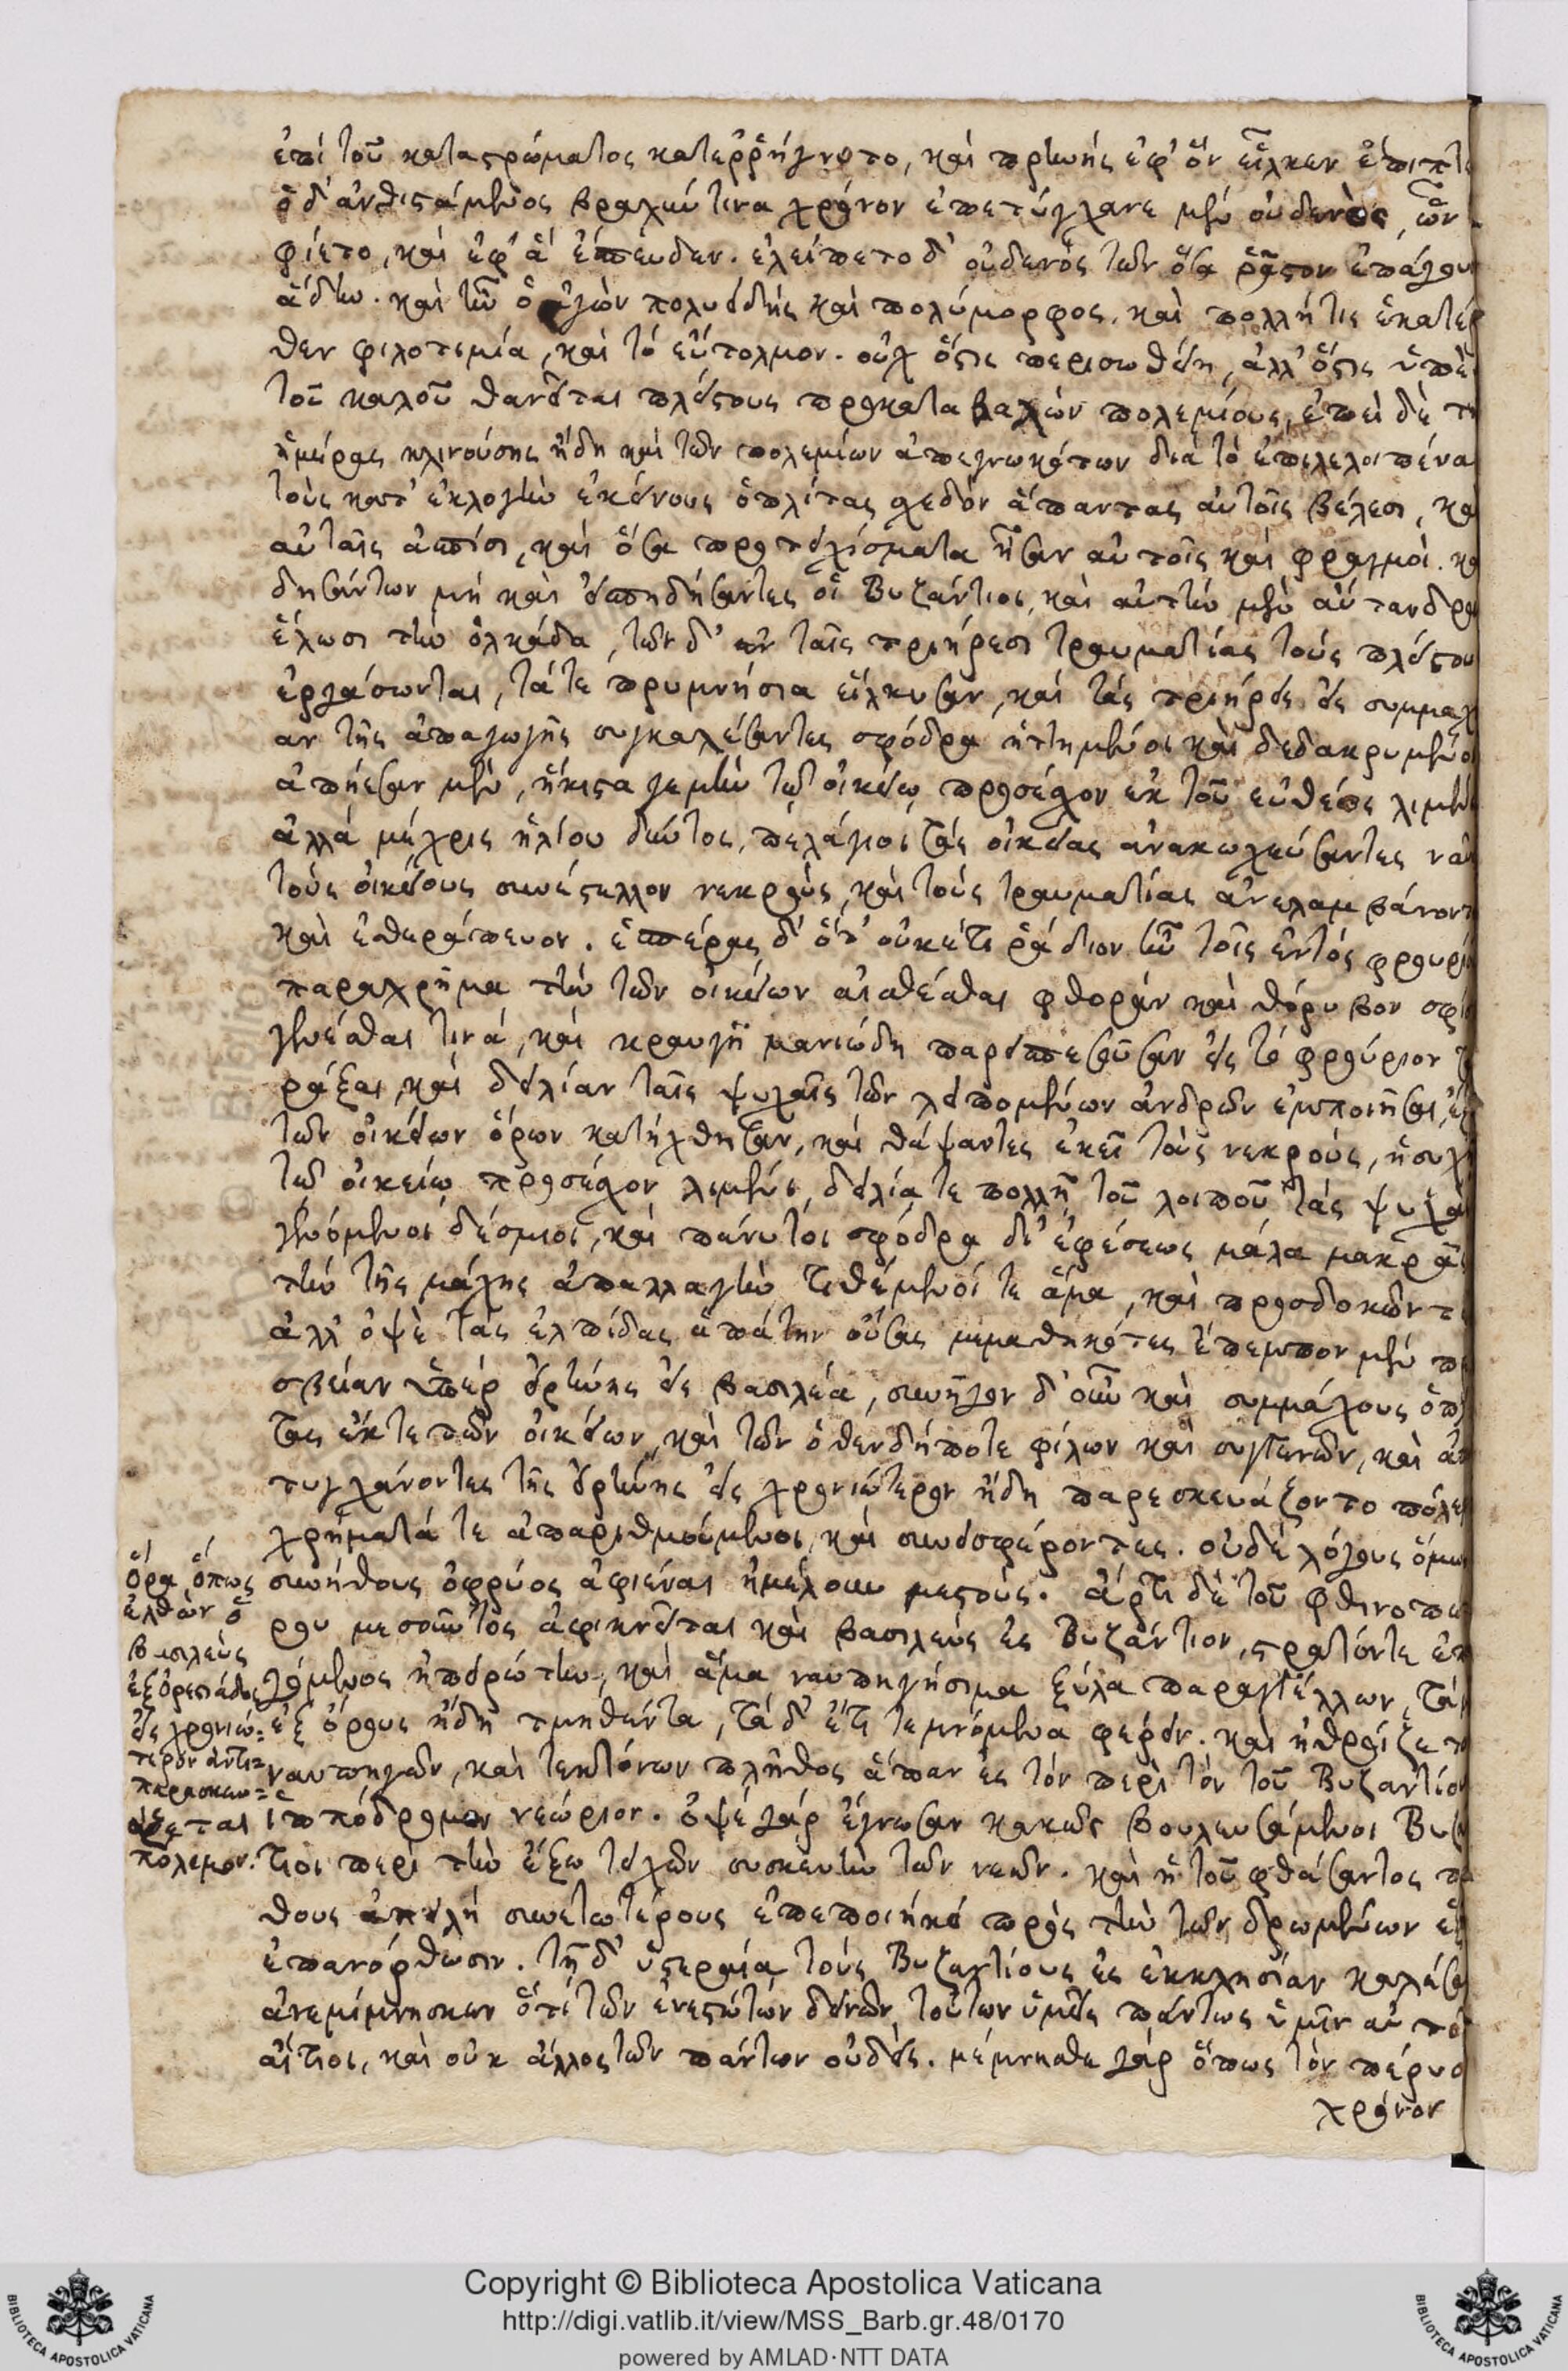 ἐπὶ τοῦ καταστρώματος κατερρήγνυτο, καὶ πρηνὴς ἐφ' ὃν εἷλκεν ἔπιπτε
ὁ δ' ἀνθιστάμενος βραχύν τινα χρόνον ἐπετύγχανε μὲν οὐδενὸς, ὧν
φίετο, καὶ ἐφ' ἃ ἔσπευδεν. ἐλείπετο δ' οὐδενὸς τῶν ὅσα ῥᾷστον ἐπάγουσι
ᾅδην. καὶ ἦν ὁ ἀγὼν πολυειδὴς καὶ πολύμορφος. καὶ πολλή τις ἑκατέρ
θεν φιλοτιμία, καὶ τὸ εὔτολμον. οὐχ ὅστις περισωθείη, ἀλλ' ὅστις ὑπὲρ
τοῦ καλοῦ θανεῖται πλείστους προκαταβαλὼν πολεμίους, ἐπεὶ δὲ τῆ
ἡμέρας κλινούσης ἤδη καὶ τῶν πολεμίων ἀπεγνωκότων διὰ τὸ ἐπιλελοιπέναι
τοὺς κατ' ἐκλογὴν ἐκείνους ὁπλίτας σχεδὸν ἅπαντας αὐτοῖς βέλεσι, καὶ
αὐταῖς ἀσπίσι, καὶ ὅσα προτειχίσματα ἦσαν αὐτοῖς καὶ φραγμοὶ. κα
δησάντων μὴ καὶ εἰσπηδήσαντες οἱ Βυζάντιοι, καὶ αὐτὴν μὲν αὔτανδρο
ἕλωσι τὴν ὁλκάδα, τῶν δ' ἐν ταῖς τριήρεσι τραυματίας τοὺς πλείστου
ἐργάσωνται, τά τε πρυμνήσια εἵλκυσαν, καὶ τὰς τριήρεις εἰς συμμαχ
αν τῆς ἀπαγωγῆς συγκαλέσαντες σφόδρα ἡττημένοι καὶ δεδακρυμένοι
ἀπῄεσαν μὲν, ἥκιστα γε μὴν τῷ οἰκείῳ προσέσχον ἐκ τοῦ εὐθέος λιμένι
ἀλλὰ μέχρις ἡλίου δύντος, πελάγιοι τὰς οἰκείας ἀνακωχεύσαντες ναῦ
τοὺς οἰκείους συνέστελλον νεκροὺς, καὶ τοὺς τραυματίας ἀνελαμβάνοντ
καὶ ἐθεράπευον. ἑσπέρας δ' ὅτ' οὐκέτι ῥᾴδιον ἦν τοῖς ἐντὸς φρουρίου
παραχρῆμα τὴν τῶν οἰκείων αἰσθέσθαι φθορὰν καὶ θόρυβον σφί
γενέσθαι τινά, καὶ κραυγῇ μανιώδη παρεισπεσοῦσαν εἰς τὸ φρούριον τ
ράξαι, καὶ δειλίαν ταῖς ψυχαῖς τῶν λειπομένων ἀνδρῶν ἐμποιῆσαι,
τῶν οἰκείων ὅρων κατήχθησαν, καὶ θάψαντες ἐκεῖ τοὺς νεκροὺς, ἡσυχῆ
τῷ οἰκείῳ προσέσχον λιμένι, δειλίᾳ τε πολλῇ τοῦ λοιποῦ τὰς ψυχὰς
γενόμενοι δέσμιοι, καὶ πάνυ τοι σφόδρα δι' ἐφέσεως μάλα μακρᾶς
τὴν τῆς μάχης ἀπαλλαγὴν τιθέμενοί τε ἅμα, καὶ προσδοκῶντε
ἀλλ' ὀψὲ τὰς ἐλπίδας ἀπάτην οὔσας μεμαθηκότες ἔπεμπον μὲν πρ
σβείαν ὑπὲρ εἰρήνης εἰς βασιλέα, συνῆγον δ' οὖν καὶ συμμάχους ὁπλ
τας ἔκ τε τῶν οἰκείων, καὶ τῶν ὁθενδήποτε φίλων καὶ συγγενῶν, καὶ ἀπ
τυγχάνοντες τῆς εἰρήνης εἰς χρονιώτερον ἤδη παρεσκευάζοντο πόλεμ
χρήματά τε ἀπαριθμούμενοι, καὶ συνεισφέροντες. οὐδὲ λόγους ὅμως
συνήθους ὀφρύος ἀφιέναι ἠμέλουν μεστούς. ἄρτι δὲ τοῦ φθινοπώ
ρου μεσοῦντος ἀφικνεῖται καὶ βασιλεὺς ἐς Βυζάντιον, στρατόν τε ἐπ
γόμενος ἠπειρώτην, καὶ ἅμα ναυπηγήσιμα ξύλα παραγγέλλων, τὰ
ἐξ ὄρους ἤδη τμηθέντα, τὰ δ' ἔτι τεμνόμενα φέρειν. καὶ ἤθροιζε τὸ
ναυπηγῶν, καὶ τεκτόνων πλῆθος ἅπαν ἐς τὸν περὶ τὸν τοῦ Βυζαντίου
ἱππόδρομον νεώριον. ὀψὲ γὰρ ἔγνωσαν κακῶς βουλευσάμενοι Βυζ
τιοι περὶ τὴν ἔξω τειχῶν συσκευὴν τῶν νεῶν. καὶ ἡ τοῦ φθάσαντος π
θους ἀπειλὴ συνετωτέρους ἐπεποιήκει πρὸς τὴν τῶν δρωμένων
ἐπανόρθωσιν. τῇ δ' ὑστεραίᾳ τοὺς Βυζαντίους ἐς ἐκκλησίαν καλέσα
ἀνεμίμνησκεν ὅτι τῶν ἐνεστώτων δεινῶν τούτων ὑμεῖς πάντως ὑμῖν αὐτοῖ
αἴτιοι, καὶ οὐκ ἄλλος τῶν πάντων οὐδείς. μέμνησθε γὰρ ὅπως τὸν πέρυσι
χρόνον
ὅρα ὅπως
ἐλθὼν ὁ
βασιλεὺς
ἐξ ὀρεστιάδος
εἰς χρονιώ=
τερον ἀντι=
παρασκευ=
άζεται
πόλεμον.
Copyright © Biblioteca Apostolica Vaticana
http://digi.vatlib.it/view/MSS_Barb.gr.48/0170
powered by AMLAD·NTT DATA
BIBLIOTECA APOSTOLICA VATICANA
BIBLIOTECA APOSTOLICA VATICANA